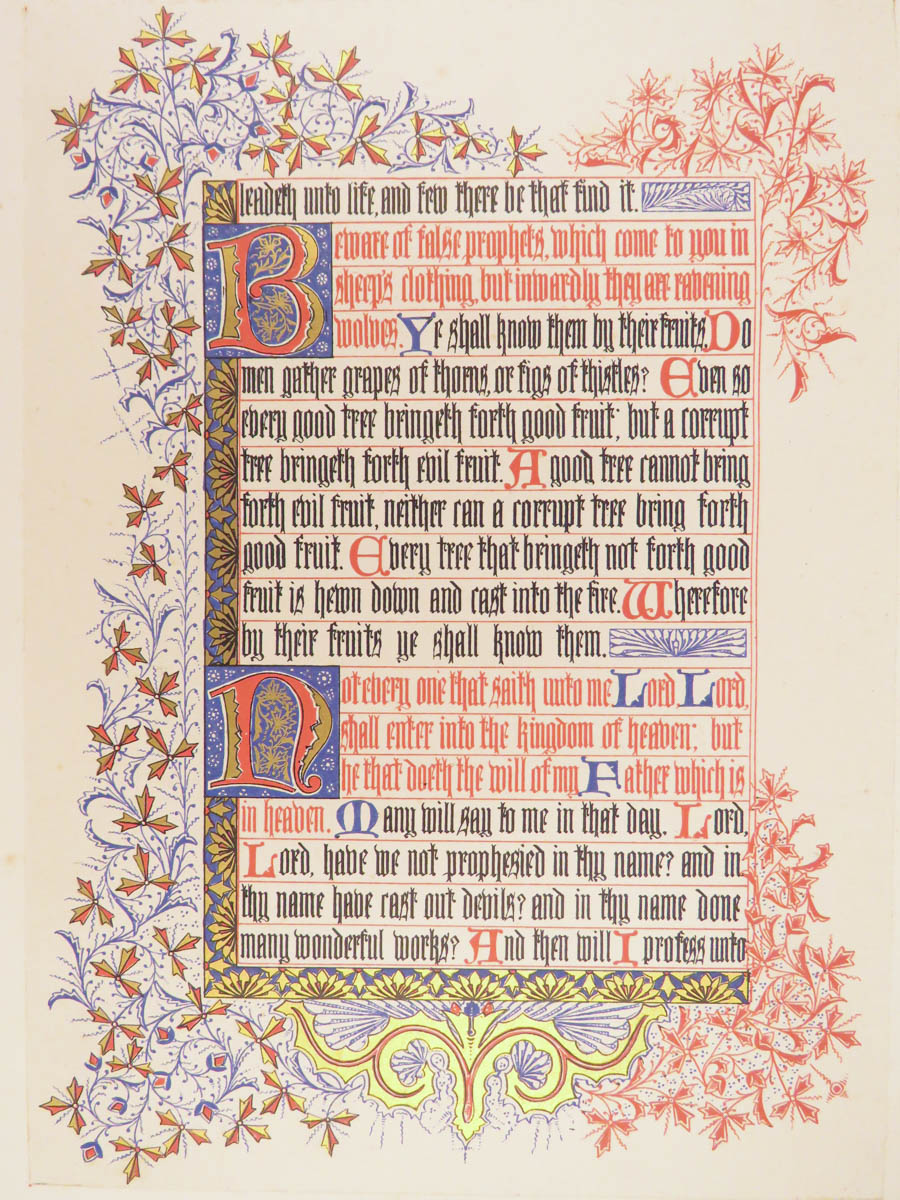 leadeth unto life, and few there be that find it.
Beware of false prophets, which come to you in
sheep's clothing, but inwardly they are ravening
wolves. Ye shall know them by their fruits. Do
men gather grapes of thorns, or figs of thistles? Even so
every good tree bringeth forth good fruit; but a corrupt
tree bringeth forth evil fruit. A good tree cannot bring
forth evil fruit, neither can a corrupt tree bring forth
good fruit. Every tree that bringeth not forth good
fruit is hewn down and cast into the fire. Wherefore
by their fruits ye shall know them.
Not every one that saith unto me Lord Lord,
shall enter into the kingdom of heaven; but
he that doeth the will of my Father which is
in heaven. Many will say to me in that day, Lord,
Lord, have we not prophesied in thy name? and in
thy name have cast out devils? and in thy name done
many wonderful works? And then will I profess unto